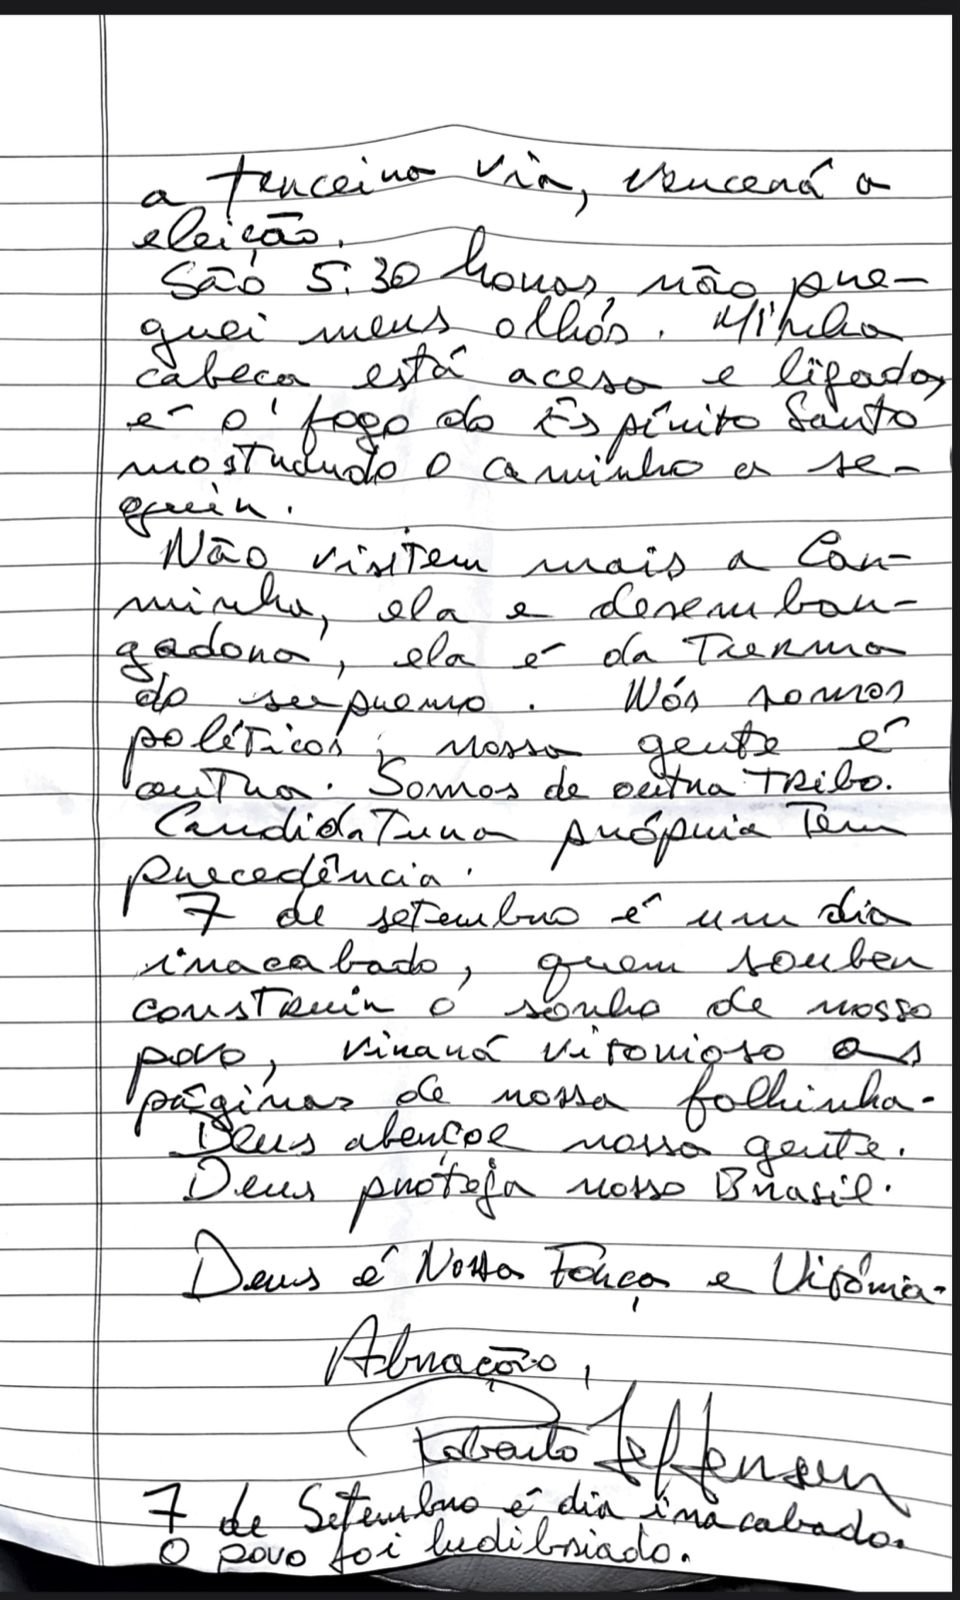 a terceira via, vencerá a
eleição.
São 5:30 horas, não pre-
guei meus olhos. Minha
cabeça está acesa e ligada,
é o fogo do Espírito Santo
mostrando o caminho a se-
guir.
Não visitem mais a Car-
minha, ela e desembar-
gadora, ela é da Turma
do supremo. Nós somos
políticos, nossa gente é
outra. Somos de outra Tribo.
Candidatura própria Tem
precedência.
7 de setembro é um dia
inacabado, quem souber
construir o sonho de nosso
povo, virará vitorioso as
páginas de nossa folhinha.
Deus abençoe nossa gente.
Deus proteja nosso Brasil.
Deus é Nossa Força e Vitória.
Abração,
Roberto Jefferson
7 de Setembro é dia inacabado.
O povo foi ludibriado.